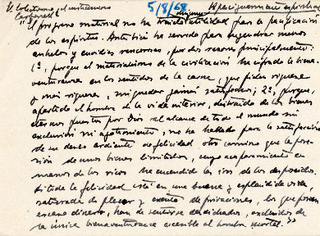 El Cristianismo y el
5/8/68
"El progreso material no ha
de los espíritus. Antes bien ha servido para engendrar nuevos
anhelos y nuevos rencores, por dos razones principalmente:
1ª, porque el materialismo de la civilización ha cifrado la bien-
aventuranza en los sentidos de la carne, que piden siempre
y más siempre, sin quedar jamás satisfechos; 2ª, porque,
apartado el hombre de la vida interior, distraído de los bienes
eternos puestos por Dios al alcance de todo el mundo sin
exclusión ni agotamiento, no ha hallado para la satisfacción
de su deseo ardiente de felicidad otro camino que la pose-
sión de unos bienes limitados, cuyo acaparamiento en
manos de los ricos ha encendido la ira de los desposeídos.
Si toda la felicidad está en una buena y espléndida vida,
saturada de placer y exenta de privaciones, los que posean
escaso dinero, han de sentirse desdichados, excluidos de
la única bienaventuranza accesible al hombre mortal."